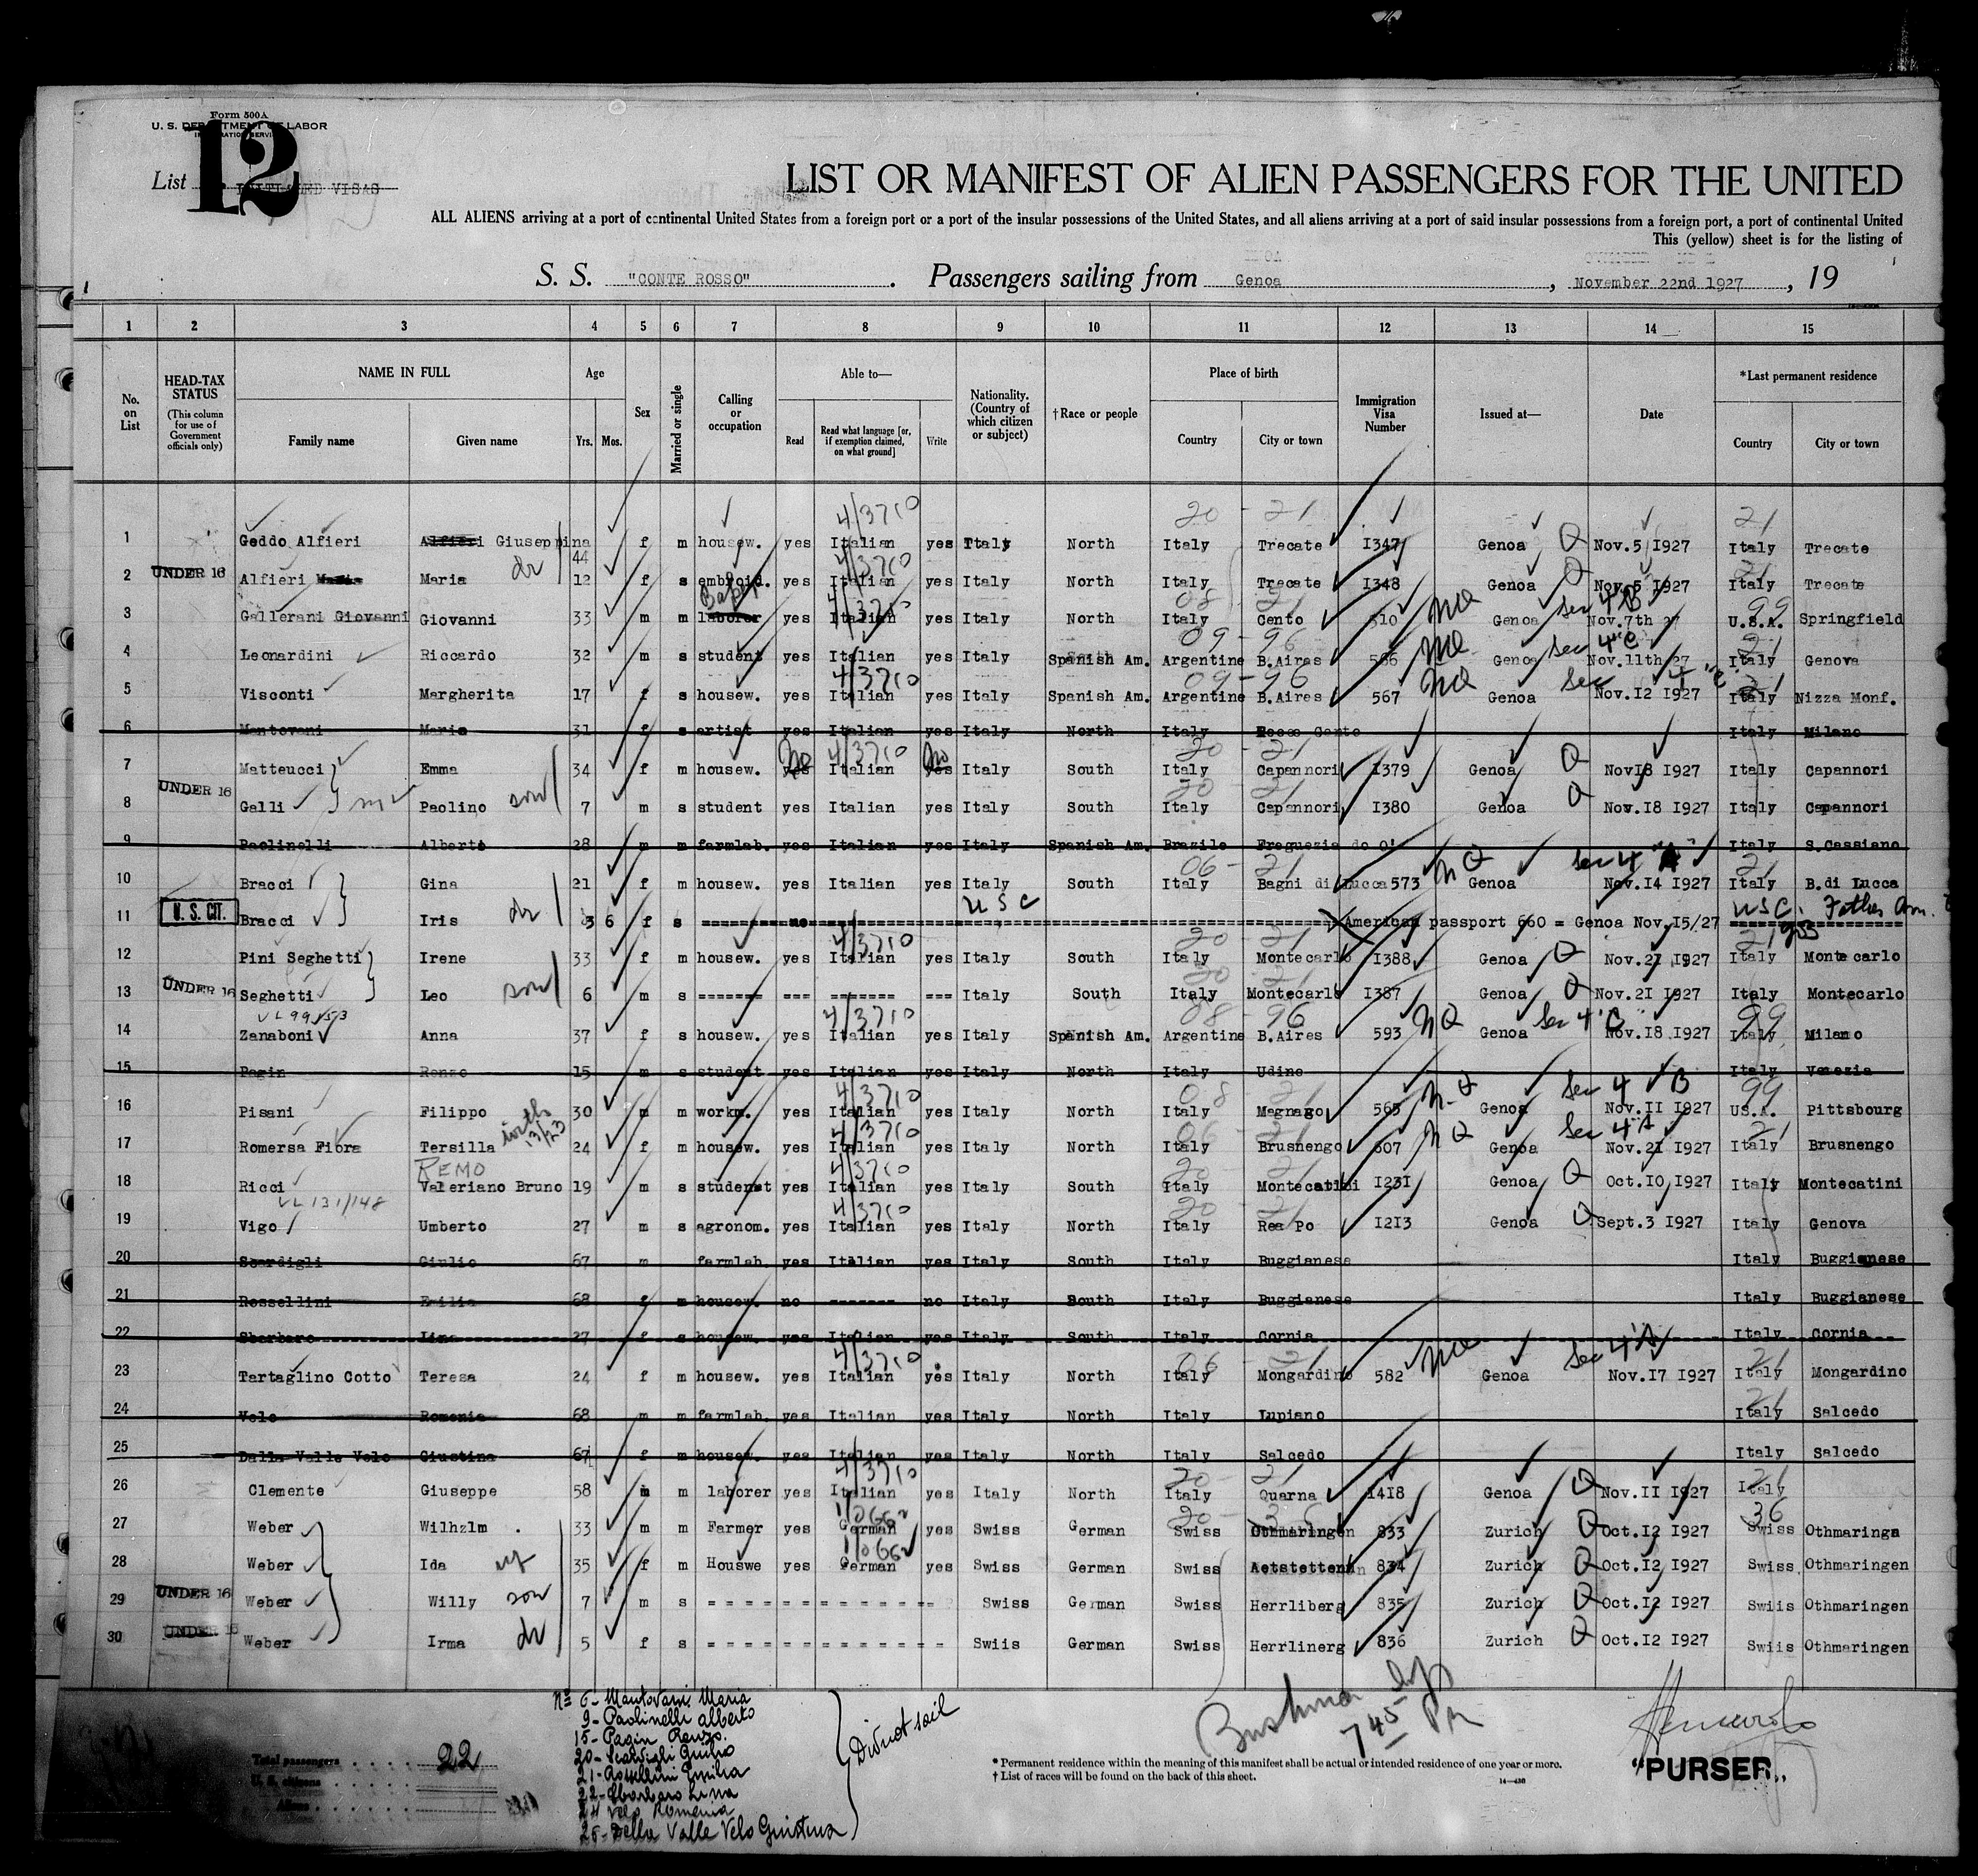 Form 500A
U. S. DEPARTMENT OF LABOR
IMMIGRATION SERVICE
12
List VISAS
LIST OR MANIFEST OF ALIEN PASSENGERS FOR THE UNITED
ALL ALIENS arriving at a port of continental United States from a foreign port or a port of the insular possessions of the United States, and all aliens arriving at a port of said insular possessions from a foreign port, a port of continental United
This (yellow) sheet is for the listing of
S. S. "CONTE ROSSO" . Passengers sailing from Genoa , November 22nd 1927 , 19
1 2 3 4 5 6 7 8 9 10 11 12 13 14 15
No. on List
HEAD-TAX STATUS (This column for use of Government officials only)
NAME IN FULL Family name Given name
Age Yrs. Mos.
Sex
Married or single
Calling or occupation
Able to— Read Read what language [or, if exemption claimed, on what ground] Write
Nationality. (Country of which citizen or subject)
†Race or people
Place of birth Country City or town
Immigration Visa Number
Issued at—
Date
*Last permanent residence Country City or town
4/3710 20 - 21 21
1 Geddo Alfieri Alfieri Giuseppina 44 f m housew. yes Italian yes Italy North Italy Trecate I347 Genoa Q Nov.5 I927 Italy Trecate
4/3710
2 UNDER 16 Alfieri Maria Maria dr 12 f s embroid. yes Italian yes Italy North Italy Trecate I348 Genoa Q Nov.5 I927 Italy Trecate
4/3710 08 - 21 NQ Sec 4 B 99
3 Gallerani Giovanni Giovanni 33 m m laborer yes Italian yes Italy North Italy Cento 510 Genoa Nov.7th 27 U.S.A. Springfield
09-96 NQ Sec 4 "C" 21
4 Leonardini Riccardo 32 m s student yes Italian yes Italy Spanish Am. Argentine B.Aires 566 Genoa Nov.11th 27 Italy Genova
4/3710 09-96 NQ Sec 4 "C"
5 Visconti Margherita 17 f s housew. yes Italian yes Italy Spanish Am. Argentine B.Aires 567 Genoa Nov.I2 I927 Italy Nizza Monf.
6 Mantovani Maria 31 f s artist yes Italian yes Italy North Italy Italy Milano
no 4/3710 no 20 - 21
7 Matteucci Emma 34 f m housew. yes Italian yes Italy South Italy Capannori I379 Genoa Q NovI8 I927 Italy Capannori
8 UNDER 16 Galli Paolino son 7 m s student yes Italian yes Italy South Italy Capannori I380 Genoa Q Nov.I8 I927 Italy Capannori
9 Paolinelli Alberto 28 m m farmlab. yes Italian yes Italy Spanish Am. Brazile Freguezia do O' Italy S.Cassiano
06 - 21 NQ Sec 4 "A" 21
10 Bracci Gina 21 f m housew. yes Italian yes Italy South Italy Bagni di Lucca 573 Genoa Nov.I4 I927 Italy B.di Lucca
USC
11 U. S. CIT. Bracci Iris dr 3 6 f s no American passport 660 = Genoa Nov.I5/27 USC. Father
4/3710 20 - 21
12 Pini Seghetti Irene 33 f m housew. yes Italian yes Italy South Italy Montecarlo I388 Genoa Q Nov.2I I927 Italy Monte carlo
13 UNDER 16 Seghetti Leo son 6 m s ------- --- ------- --- Italy South Italy Montecarlo I387 Genoa Q Nov.2I I927 Italy Montecarlo
4/3710 08-96 NQ Sec 4 "C" 99
14 Zanaboni Anna 37 f s housew. yes Italian yes Italy Spanish Am. Argentine B.Aires 593 Genoa Nov.I8 I927 Italy Milano
15 Pagin Renzo 15 m s student yes Italian yes Italy North Italy Udine Italy Venezia
4/3710 08 - 21 N.Q Sec 4 B 99
16 Pisani Filippo 30 m m workm. yes Italian yes Italy North Italy Magnago 565 Genoa Nov.II I927 US.A. Pittsbourg
4/3710 06 - 21 NQ Sec 4 A 21
17 Romersa Fiora Tersilla with 13/23 24 f m housew. yes Italian yes Italy North Italy Brusnengo 607 Genoa Nov.2I I927 Italy Brusnengo
REMO 4/3710 20 - 21
18 Ricci Valeriano Bruno 19 m s student yes Italian yes Italy South Italy Montecatini I23I Genoa Q Oct.I0 I927 Italy Montecatini
VL 131/148 4/3710 20 - 21
19 Vigo Umberto 27 m s agronom. yes Italian yes Italy North Italy Rea Po I2I3 Genoa Q Sept.3 I927 Italy Genova
20 Scardigli Giulio 67 m farmlab. yes Italian yes Italy South Italy Buggianese Italy Buggianese
21 Rossellini Emilia 68 f m housew. no ------- no Italy South Italy Buggianese Italy Buggianese
22 Sbarbaro Lina 27 f s housew. yes Italian yes Italy South Italy Cornia Italy Cornia
4/3710 06 - 21 NQ Sec 4 "A" 21
23 Tartaglino Cotto Teresa 24 f m housew. yes Italian yes Italy North Italy Mongardino 582 Genoa Nov.I7 I927 Italy Mongardino
24 Velo Romenia 68 m m farmlab. yes Italian yes Italy North Italy Lupiano Italy Salcedo
25 Dalla Valle Velo Giustina 67 f m housew. yes Italian yes Italy North Italy Salcedo Italy Salcedo
4/3710 20 - 21 21
26 Clemente Giuseppe 58 m m laborer yes Italian yes Italy North Italy Quarna I4I8 Genoa Q Nov.II I927 Italy
36
27 Weber Wilhzlm . 33 m m Farmer yes German yes Swiss German Swiss Othmaringen 833 Zurich Q Oct.I2 I927 Swiss Othmaringa
28 Weber Ida wf 35 f m Houswe yes German yes Swiss German Swiss Aetstetten 834 Zurich Q Oct.I2 I927 Swiss Othmaringen
29 UNDER 16 Weber Willy son 7 m s Swiss German Swiss Herrliberg 835 Zurich Q Oct.I2 I927 Swiis Othmaringen
30 UNDER 16 Weber Irma dr 5 f s Swiis German Swiss Herrlinerg 836 Zurich Q Oct.I2 I927 Swiis Othmaringen
Nº 6- Mantovani Maria
9- Paolinelli Alberto
15- Pagin Renzo
20- Scardigli Giulio
21- Rossellini Emilia
22- Sbarbaro Lina
24 Velo Romenia
25- Della Valle Velo Giustina
Did not sail
745 Pm
Total passengers . . . . 22
U. S. citizens . . . .
Aliens . . . . .
* Permanent residence within the meaning of this manifest shall be actual or intended residence of one year or more.
† List of races will be found on the back of this sheet.
14—430
"PURSER,,